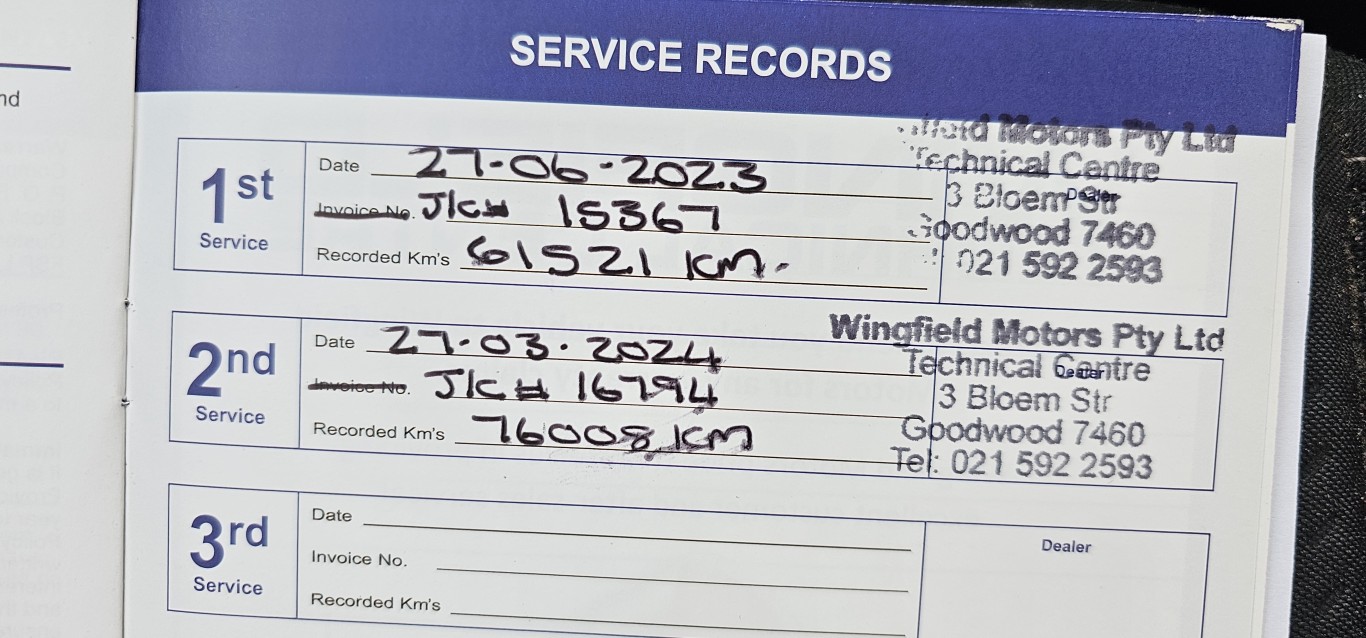 nd
SERVICE RECORDS
Motors Pty Ltd
Technical Centre
1st
Service
Date 27-06-2023
Dealer
3 Bloem Str
Invoice No. J/C# 15367
Goodwood 7460
Recorded Km's 61521 KM.
021 592 2593
Wingfield Motors Pty Ltd
2nd
Service
Date 27.03.2024
Technical Centre
Dealer
Invoice No. J/C # 16794
3 Bloem Str
Recorded Km's 76008 KM
Goodwood 7460
Tel: 021 592 2593
3rd
Service
Date
Dealer
Invoice No.
Recorded Km's